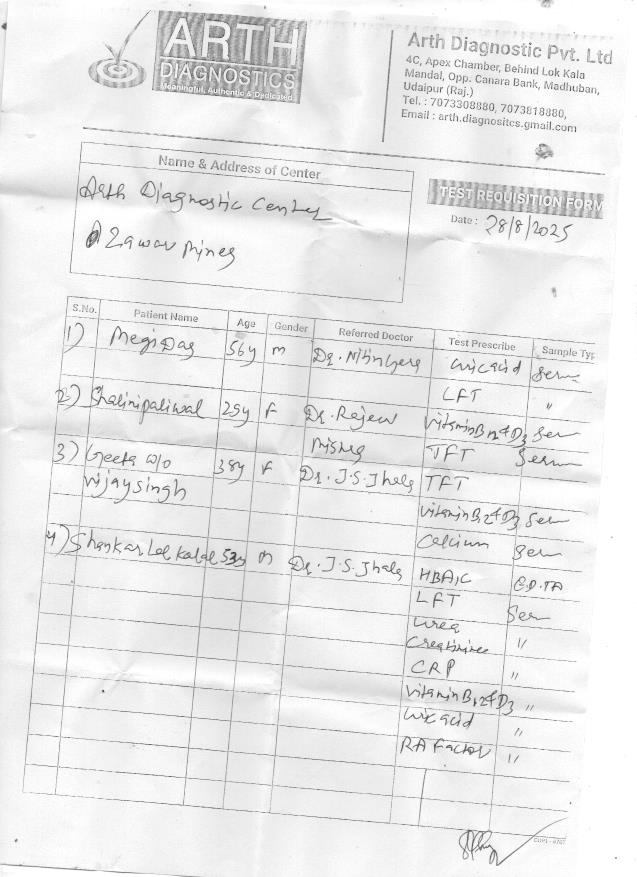 ARTH
DIAGNOSTICS
Meaningful, Authentic & Dedicated
Arth Diagnostic Pvt. Ltd
4C, Apex Chamber, Behind Lok Kala
Mandal, Opp. Canara Bank, Madhuban,
Udaipur (Raj.)
Tel. : 7073308880, 7073818880,
Email : arth.diagnositcs.gmail.com
Name & Address of Center
Arth Diagnostic Center
Zawar Mines
TEST REQUISITION FORM
Date : 28/8/2025
S.No. Patient Name Age Gender Referred Doctor Test Prescribe Sample Typ
1) Megi Das 56y m Dr. Nitin Uric acid Serum
LFT "
2) Shalini paliwal 25y F Dr. Rajeev Vitamin B12 & D3 Serum
Mishra TFT Serum
3) Geeta w/o 38y F Dr. J.S. Jhala TFT
Vijay singh
Vitamin B12 & D3 Serum
Calcium Serum
4) Shankar Lal Kalal 53y m Dr. J.S. Jhala HBA1C E.D.TA
LFT Serum
Urea
Creatinine "
CRP "
Vitamin B12 & D3 "
Uric acid "
RA Factor "